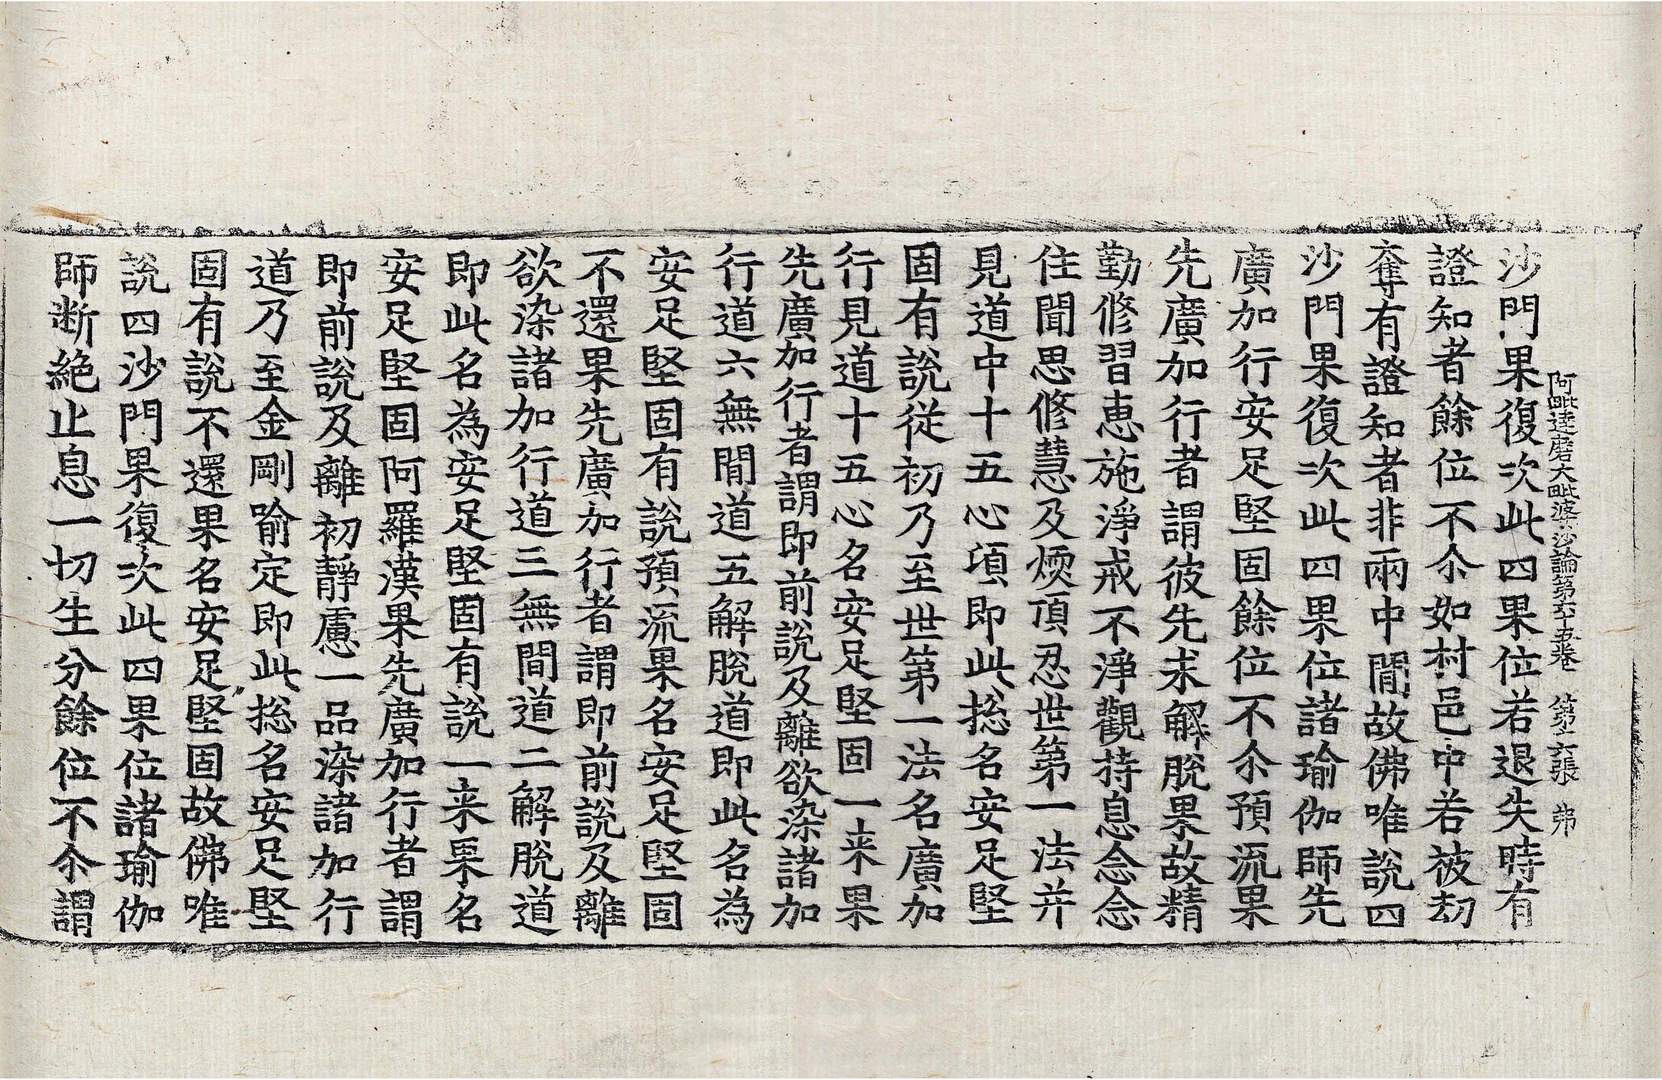 阿毗達磨大毗婆沙論第六十五卷　第六張　弗
沙門果復次此四果位若退失時有
證知者餘位不尒如村邑中若被劫
奪有證知者非兩中閒故佛唯說四
沙門果復次此四果位諸瑜伽師先
廣加行安足堅固餘位不尒預流果
先廣加行者謂彼先求解脫果故精
勤修習惠施淨戒不淨觀持息念念
住聞思修慧及煗頂忍世第一法并
見道中十五心頃即此惣名安足堅
固有說從初乃至世第一法名廣加
行見道十五心名安足堅固一来果
先廣加行者謂即前說及離欲染諸加
行道六無閒道五解脫道即此名為
安足堅固有說預流果名安足堅固
不還果先廣加行者謂即前說及離
欲染諸加行道三無閒道二解脫道
即此名為安足堅固有說一来果名
安足堅固阿羅漢果先廣加行者謂
即前說及離初靜慮一品染諸加行
道乃至金剛喻定即此惣名安足堅
固有說不還果名安足堅固故佛唯
說四沙門果復次此四果位諸瑜伽
師斷絶止息一切生分餘位不尒謂